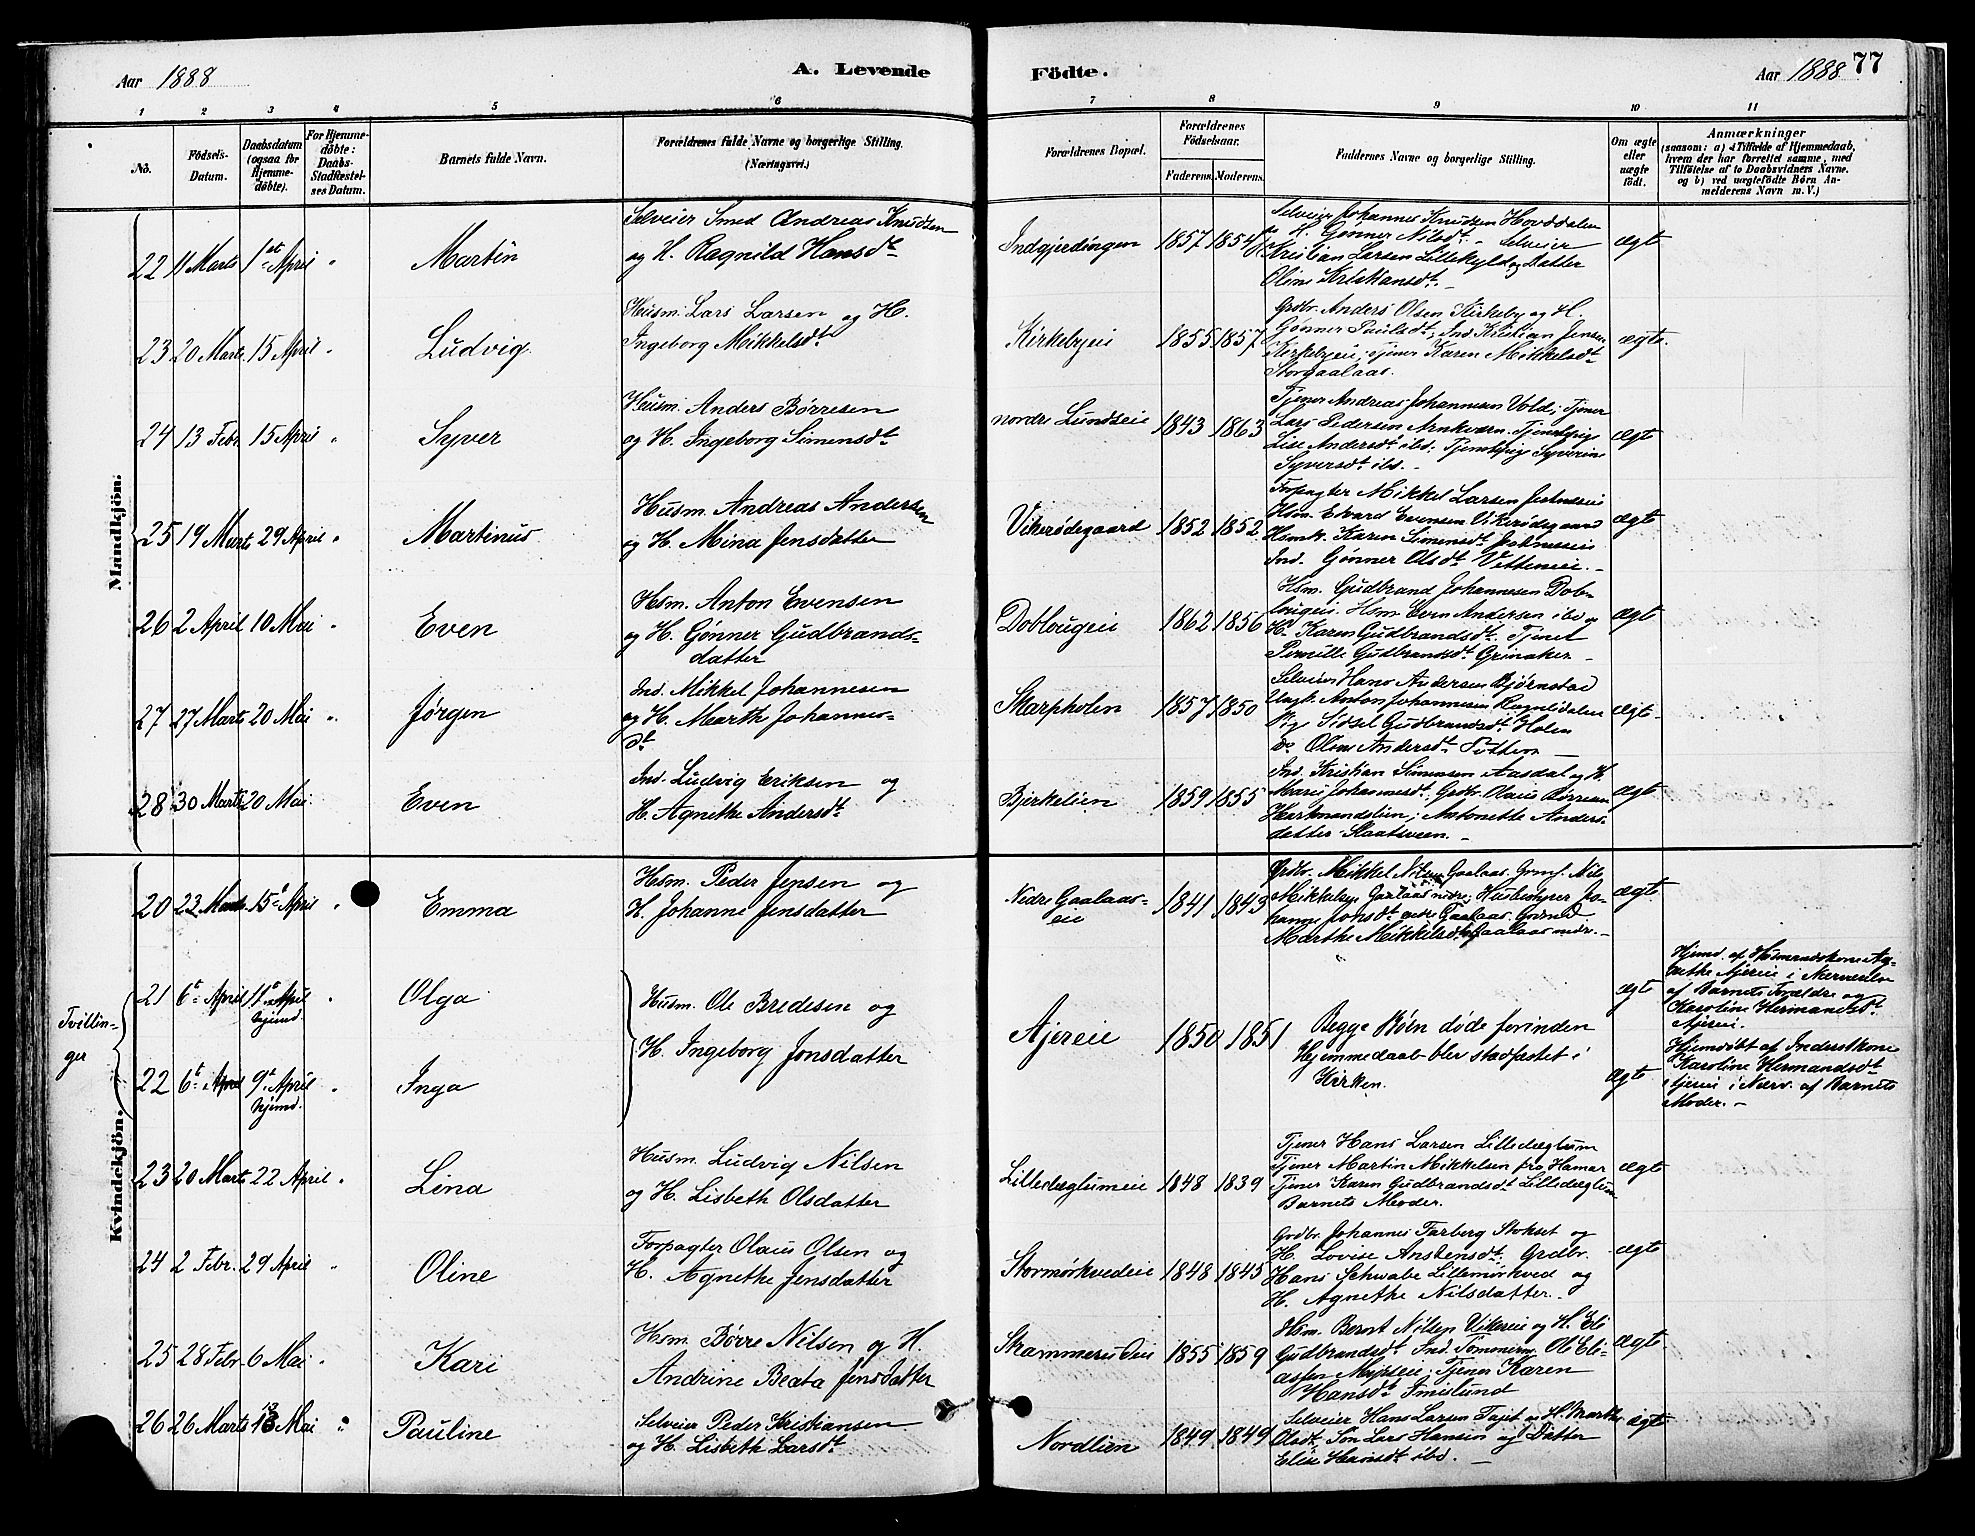 Aar 1888
A. Levende
Födte.
Aar 1888
77
1 2 3 4 5 6 7 8 9 10 11
No.
Födsels-Datum.
Daabsdatum (ogsaa for Hjemme-döbte).
For Hjemme-döbte: Daabs-Stadfæstel-ses Datum.
Barnets fulde Navn.
Forældrenes fulde Navne og borgerlige Stilling. (Næringsvei.)
Forældrenes Bopæl.
Forældrenes Födselsaar.
Faderens. Moderens.
Faddernes Navne og borgerlige Stilling.
Om ægte eller uægte födt.
Anmærkninger
(saasom: a) i Tilfælde af Hjemmedaab,
hvem der har forrettet samme, med
Tilföielse af to Daabsvidners Navne.
og b) ved uægtefödte Börn An-
melderens Navn m. V.)
Mandkjön.
22 11 Marts 1st April " Martin
Selveier Smed Andreas Knudsen
og H. Ragnild Hansdt
Indgjerdingen 1857 1854
Selveier Johannes Knudsen Hovddalen
og H. Gønner Nilsdt. - Selveier
Kristian Larsen Lillekylst og Datter
Oline Kristiansdt. -
ægte
23 20 Marts 15 April " Ludvig.
Husm. Lars Larsen og H.
Ingeborg Mikkelsdt
Kirkebyeie 1855 1857
Grdbr. Anders Olsen Kirkeby og H.
Gønner Paulsdt; Ind. Kristian Jensen
Kirkebyeie, Tjener Karen Mikkelsdt
Storgaalaas.
ægte.
24 13 Febr. 15 April " Syver
Husm. Anders Børresen
og H. Ingeborg Simensdt
nordre Lundseie 1843 1863
Tjener Andreas Johannesen Vold; Tjener
Lars Pedersen Arnkværn. Tjenstepige
Lise Andersdt ibd; Tjenstepige Syverine
Syversdt ibd. -
ægte
25 19 Marts 29 April " Martinus
Husm. Andreas Andersen
og H. Mina Jensdatter
Vikerødegaard 1852 1852
Forpagter Mikkel Larsen
Hsm. Edvard Evensen Vikerødegaard
Hsmk. Karen Simensdt
Ind. Gønner Olsdt Vetteneie. -
ægte
26 2 April 10 Mai " Even
Hsm. Anton Evensen
og H. Gønner Gudbrands-
datter
Doblougeie 1862 1856
Hsm. Gudbrand Johannesen Dob-
lougeie. Hsm. Even Andersen ibd og
H. Karen Gudbrandsdt. Tjener
Pernille Gudbrandsdt Grinaker. -
ægte
27 27 Marts 20 Mai " Jørgen
Ind. Mikkel Johannesen
og H. Marth Johannes-
dt
Skarpholen 1857 1850
Selveier Hans Andersen Bjørnstad
Ungk. Anton Johannesen
Pige Sidsel Gudbrandsdt Holen
do Oline Andersdt
ægte
28 30 Marts 20 Mai. Even
Ind. Ludvig Eriksen og
H. Agnethe Andersdt
Bjerkelien 1859 1855
Ind. Kristian Simensen Aasdal og H.
Marie Johannesdt; Grdbr. Olaus Børresen
Haarmandslien; Antonette Anders-
datter
ægte
Kvindekjön.
20 23 Marts 15de April " Emma
Hsm. Peder Jensen og
H. Johanne Jensdatter
Nedre Gaalaas-
eie 1841 1843
Grdbr. Mikkel Nilsen Gaalaas. Grmf. Nils
Mikkelsen Gaalaas nedre; Husbestyrer Jo-
hanne Jonsdt nedre Gaalaas.
Marthe Mikkelsdt Gaalaas nedre. -
ægte
Tvillin-
ger
21 6te April 11te April hjemd. " Olga
Husm. Ole Bredesen og
H. Ingeborg Jonsdatter
Ajereie 1850 1851
Begge Børn døde forinden
Hjemmedaab blev stadfæstet i
Kirken.
ægte
Hjemd. af Husmandskone Ag-
nethe Ajereie i Nærværelse
af Barnets Forældre og
Karoline Hermandsdt
Ajereie.
22 6te April 9de April hjemd. " Inga
ægte
Hjemdøbt af Inderstkone
Karoline Hermandsdt
Ajereie i Nærv. af Barnets
Moder. -
23 20 Marts 22 April " Lina
Husm. Ludvig Nilsen
og H. Lisbeth Olsdatter
Lilledæglumeie 1848 1839
Tjener Hans Larsen Lilledæglum
Tjener Martin Mikkelsen fra Hamar
Tjener Karen Gudbrandsdt Lilledæglum
Barnets Moder.
ægte
24 2 Febr. 29 April " Oline
Forpagter Olaus Olsen og
H. Agnethe Jensdatter
Stormørkvedeie 1848 1845
Grdbr. Johannes Farberg Stokset og
H. Lovise Anstensdt; Grdbr.
Hans Schwabe Lillemørkved og
H. Agnethe Nilsdatter.
ægte
25 28 Febr. 6 Mai " Kari
Hsm. Børre Nilsen og H.
Andrine Beata Jensdatter
Skammerudeie 1855 1859
Hsm. Bernt Nilsen Vikereie og H. Eli
Gudbrandsdt Ind. Tømmerm. Ole Eli-
assen; Tjener Karen
Hansdt Imislund
ægte
26 26 Marts 13 Mai " Pauline
Selveier Peder Kristiansen
og H. Lisbeth Larsdt
Nordlien 1849 1849
Selveier Hans Larsen Tajet og H. Marthe
Olsdt. Søn Lars Hansen og Datter
Elise Hansdt ibd. -
ægte